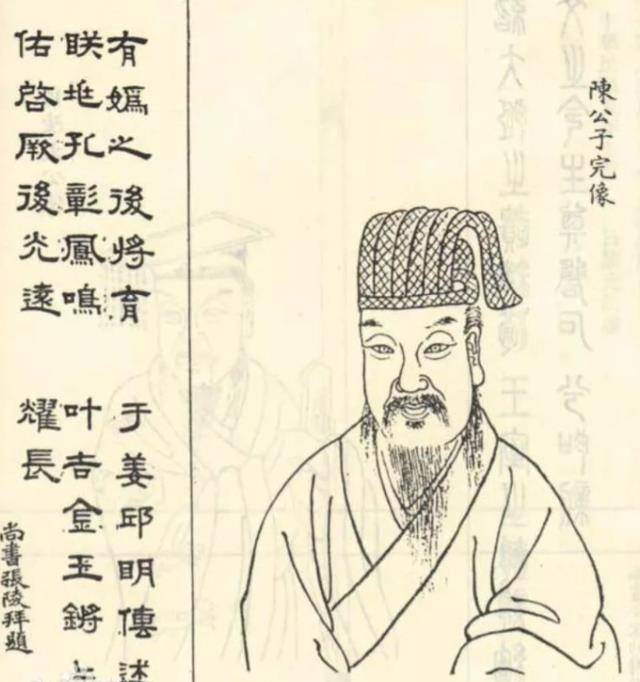 陳公子完像
有嬀之後將育 于姜邱明傳
孔彰鳳鳴 叶吉金玉鏘
佑啓厥後光遠 耀長
尚書張陵拜題